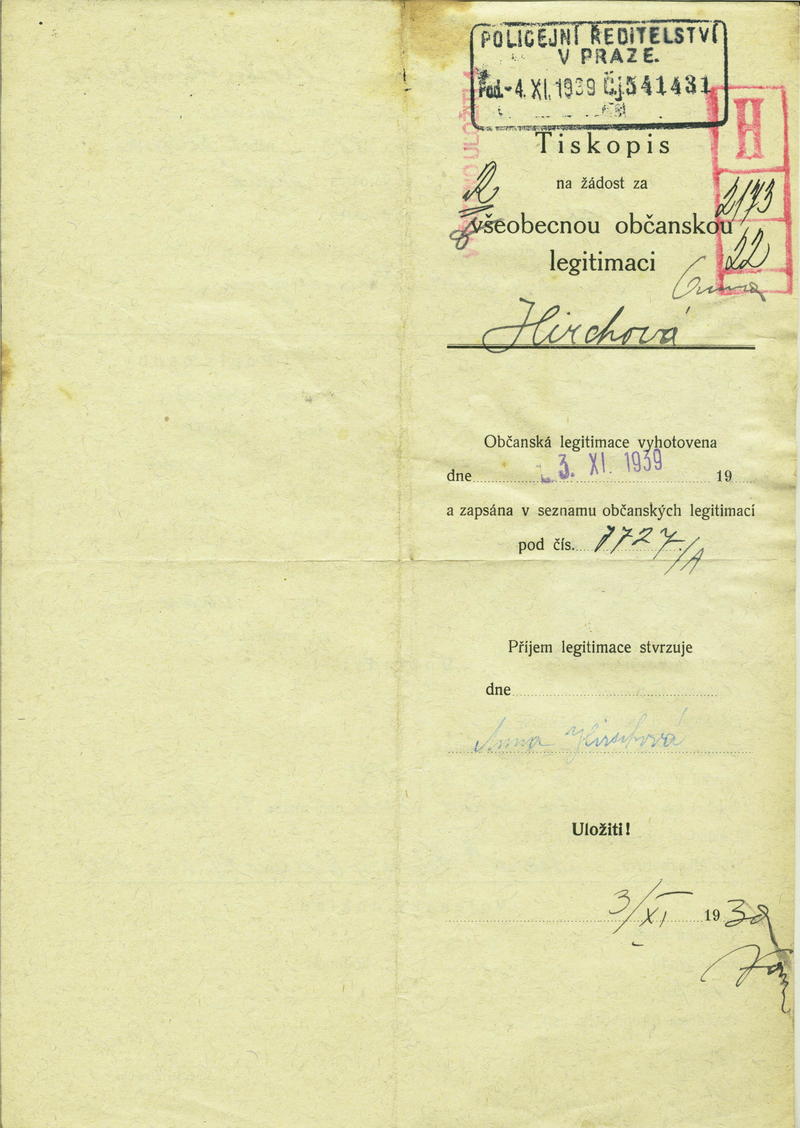 POLICEJNÍ ŘEDITELSTVÍ
V PRAZE.
Pod. -4. XI. 1939 Čj. 541431
Tiskopis
H
na žádost za
R
2173
všeobecnou občanskou
22
legitimaci
Anna
Hirchová
Občanská legitimace vyhotovena
dne 3. XI. 1939 19
a zapsána v seznamu občanských legitimací
pod čís. 1727/A
Příjem legitimace stvrzuje
dne
Anna Hirschová
Uložiti!
3/XI 1939